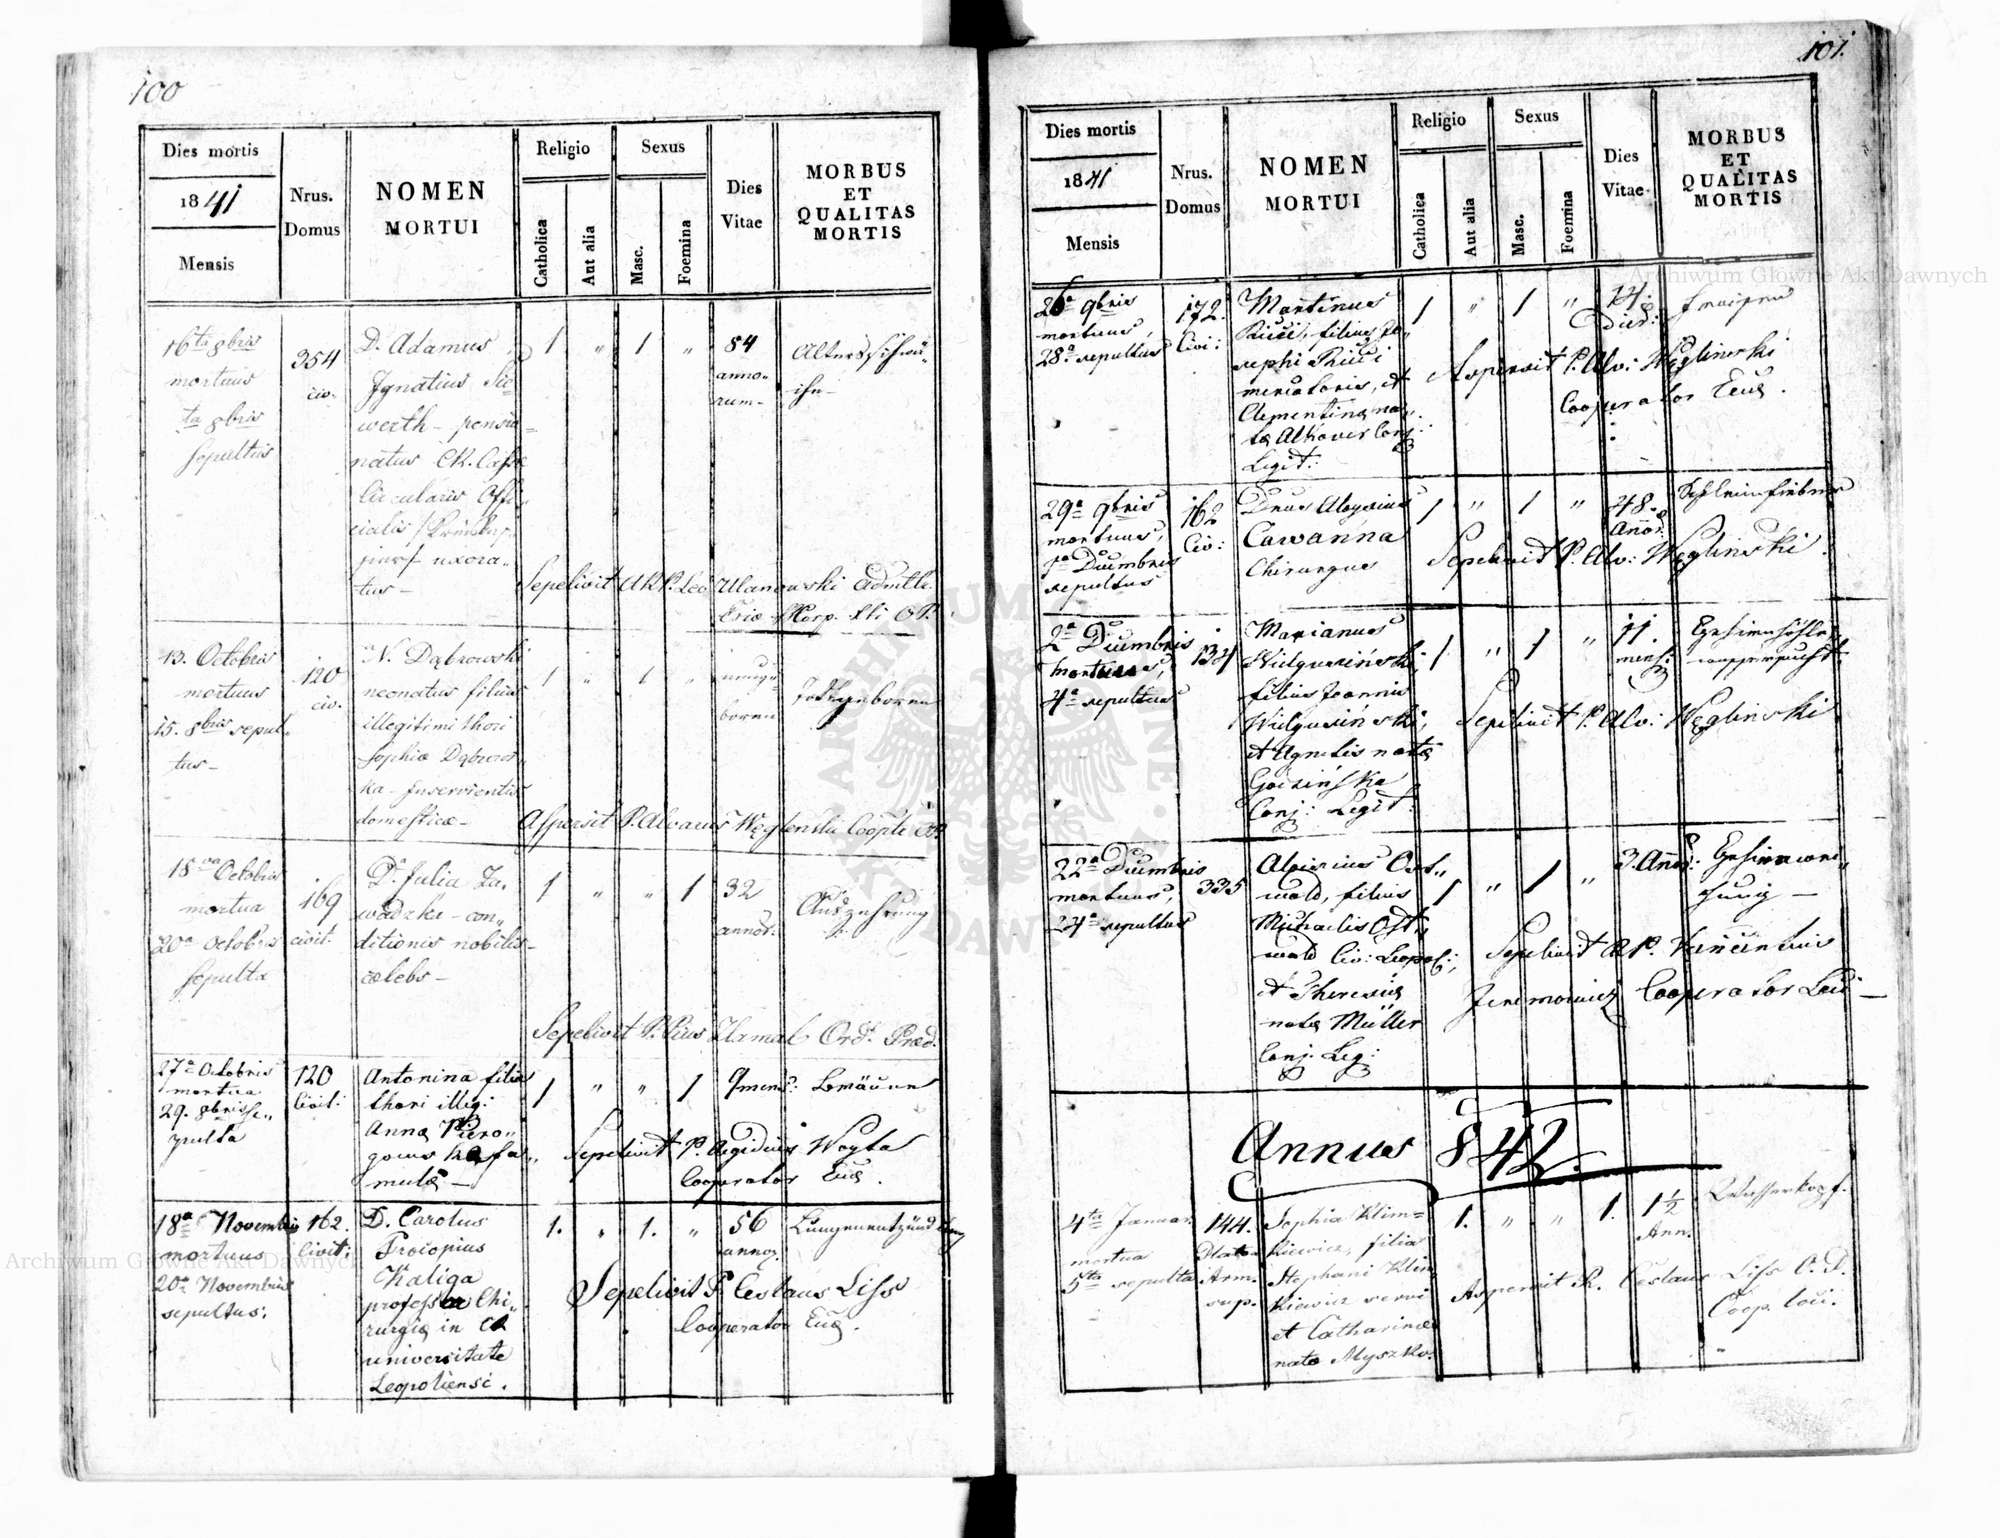 100
Dies mortis
1841
Mensis
Nrus.
Domus
NOMEN
MORTUI
Religio
Catholica
Aut alia
Sexus
Masc.
Foemina
Dies
Vitae
MORBUS
ET
QUALITAS
MORTIS
16ta 8bris
mortuus
ta 8bris
Sepultus
354
civ.
D. Adamus
Ignatius Sie
werth - pensio
natus CR. Cassæ
Circularis Offi
cialis
uxora
tus -
1 " 1 "
84
anno
rum -
Sepelivit P. Leo Ulanowski
13. Octobris
mortuus
15. 8bris sepul
tus -
120
civ.
N. Dąbrowski
neonatus filius
illegitimi thori
Sophiæ Dąbrows
ka - Inservientis
domesticæ -
1 " 1 "
boren
Todtgeboren
Aspersit P. Alvarus
18va Octobris
mortua
20a Octobris
sepulta
169
civit.
Da. Julia Za
wadzka - con
ditionis nobilis
cælebs -
1 " " 1
32
annor.
Auszehrung
Sepelivit P. Pius Ord. Præd.
27a Octobris
mortua
29. 8bris se
pulta
120
Civit:
Antonina filia
thori illeg:
Annæ Piero
gows ka fa
mulæ -
1 " " 1
9 mens:
Bräune
Sepelivit P. Aegidius Wogta
Cooperator Eccl.
18a Novembris
mortuus
20a Novembris
sepultus.
162.
Civit:
D. Carolus
Procopius
Kaliga
professor Chi
rurgiæ in CR
universitate
Leopoliensi.
1. " 1. "
56
annor.
Lungenentzündung
Sepelivit P. Ceslaus Liss
Cooperator Eccl.
101.
Dies mortis
1841
Mensis
Nrus.
Domus
NOMEN
MORTUI
Religio
Catholica
Aut alia
Sexus
Masc.
Foemina
Dies
Vitae
MORBUS
ET
QUALITAS
MORTIS
26a 9bris
mortuus,
28a sepultus
172.
Civi:
Martinus
Ricci, filius Jo
sephi Ricci
mercatoris, et
Clementinæ na
tæ Conj:
Legit:
1 " 1 "
14.
Dier:
Fraisen
Aspersit P. Alv: Węglinski
Cooperator Eccl.
29a 9bris
mortuus,
1a Decembris
sepultus
162
Civ:
Dnus Aloysius
Cawanna
Chirurgus
1 " 1 "
48.
Annor.
Schleimfieber
Sepelivit P. Alv: Węglinski
2a Decembris
mortuus,
4a sepultus
134
Marianus
Wielgusiński,
filius Joannis
Wielgusiński,
et Agnetis natæ
Conj: Legit:
1 " 1 "
11.
mens:
Sepelivit P. Alv: Węglinski
22a Decembris
mortuus,
24a sepultus
335
Aloisius Ost
wald, filius
Michaelis Ost
wald Civ: Leopol:
et Theresiæ
natæ Müller
Conj: Leg:
1 " 1 "
3. Annor:
Sepelivit P.
Jeremowicz Cooperator Loci
Annus 842.
4ta Januar.
mortua
5ta sepulta
144.
Arm.
sup.
Sophia Klim
kiewicz, filia
Stephani Klim
kiewicz servi
et Catharinæ
natæ Myszko.
1. " " 1.
1½
Ann.
Wasserkopf.
Aspersit R. Ceslaus Liss O.D.
Coop. loci.
Archiwum Główne Akt Dawnych
Archiwum Główne Akt Dawnych
ARCHIWUM GŁÓWNE AKT DAWNYCH